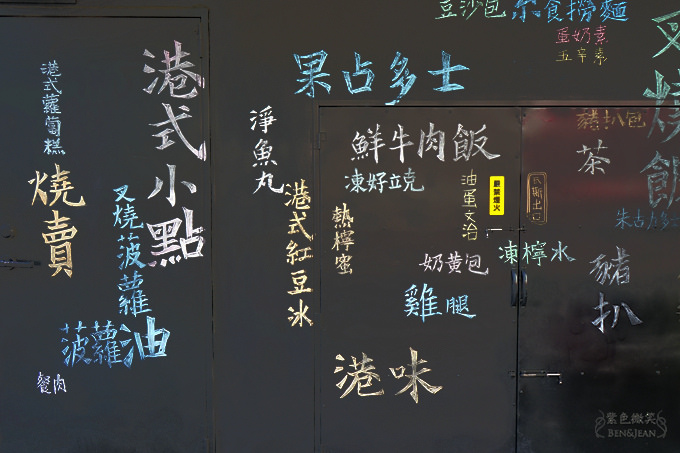 豆沙包
素食撈麵
蛋奶素
五辛素
叉燒飯
港式蘿蔔糕
港式小點
果占多士
燒賣
叉燒菠蘿
菠蘿油
餐肉
淨魚丸
港式紅豆冰
鮮牛肉飯
凍好立克
熱檸蜜
油蛋文治
嚴禁煙火
奶黃包
凍檸水
雞腿
港味
豬扒包
茶
朱古力多士
豬扒
紫色微笑
BEN&JEAN